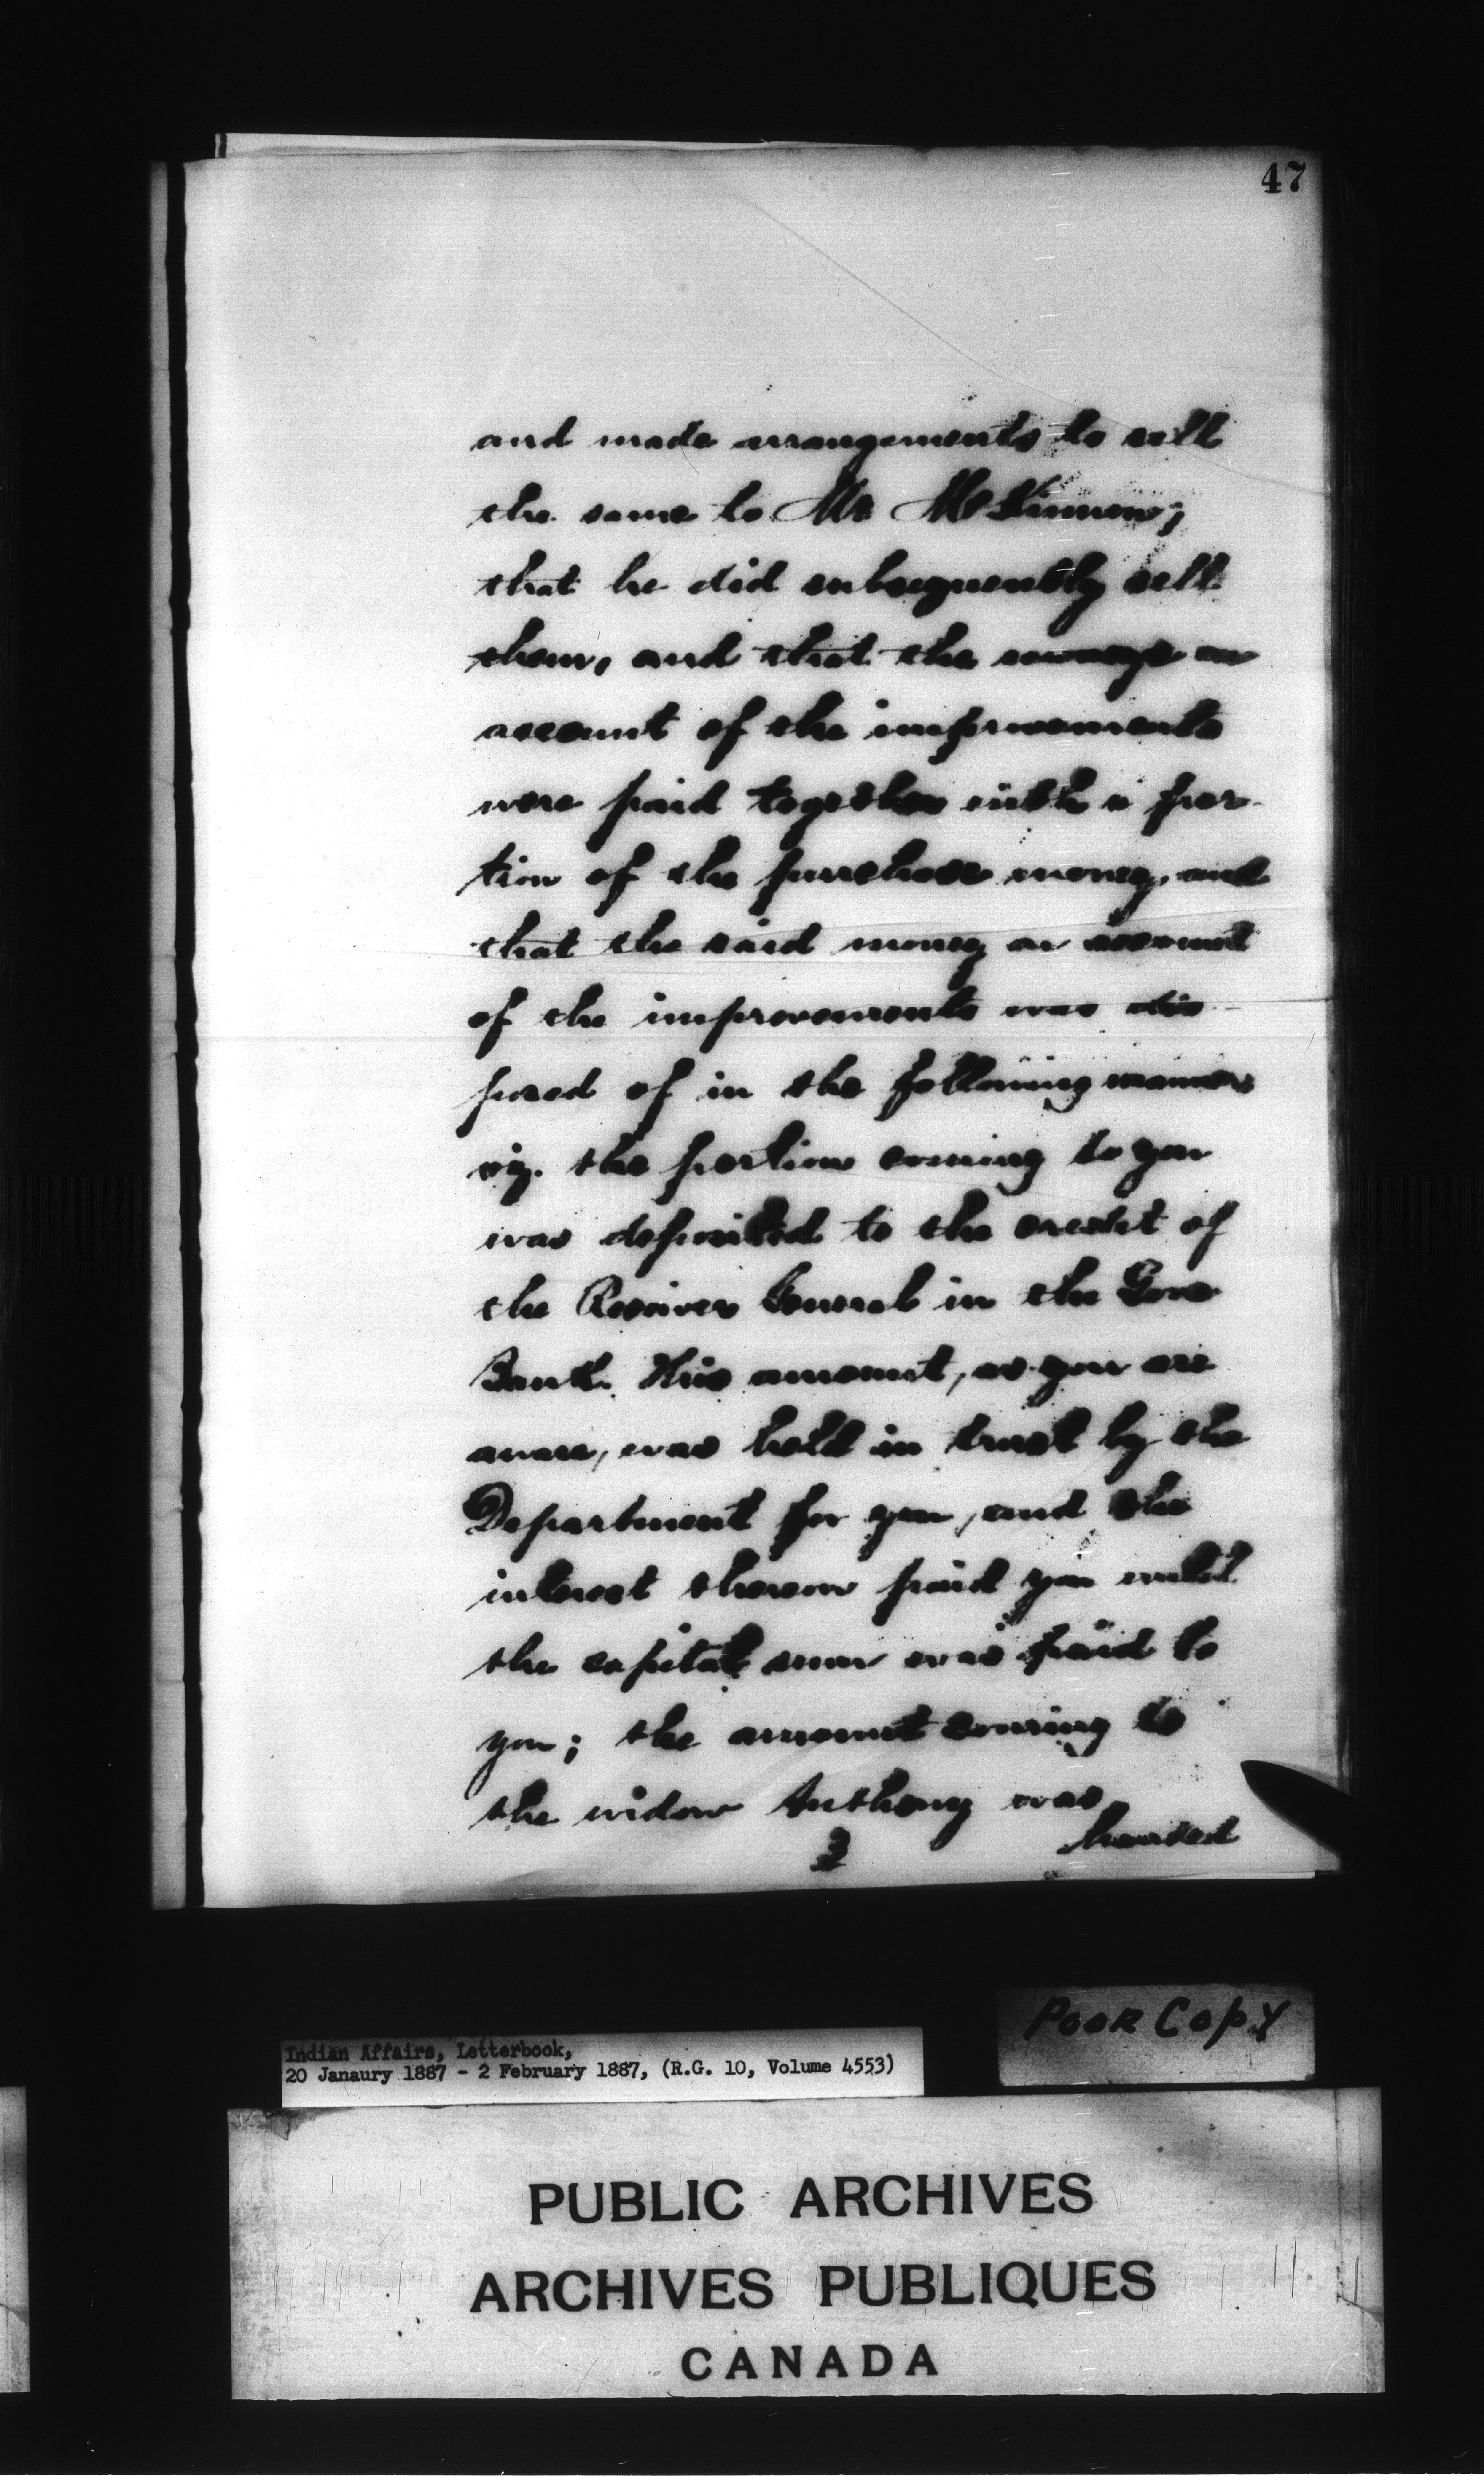 47
and made arrangements to sell
the same to Mr McKinnon;
that he did subsequently sell
them, and that the moneys on
account of the improvements
were paid together with a por-
tion of the purchase money, and
that the said money on account
of the improvements was dis-
posed of in the following manner
viz. the portion coming to you
was deposited to the credit of
the Receiver General in the Gore
Bank. This amount, as you are
aware, was held in trust by the
Department for you, and the
interest thereon paid you until
the capital sum was paid to
you; the amount coming to
the widow Anthony was
handed
3
Poor Copy
Indian Affairs, Letterbook,
20 Janaury 1887 - 2 February 1887, (R.G. 10, Volume 4553)
PUBLIC ARCHIVES
ARCHIVES PUBLIQUES
CANADA